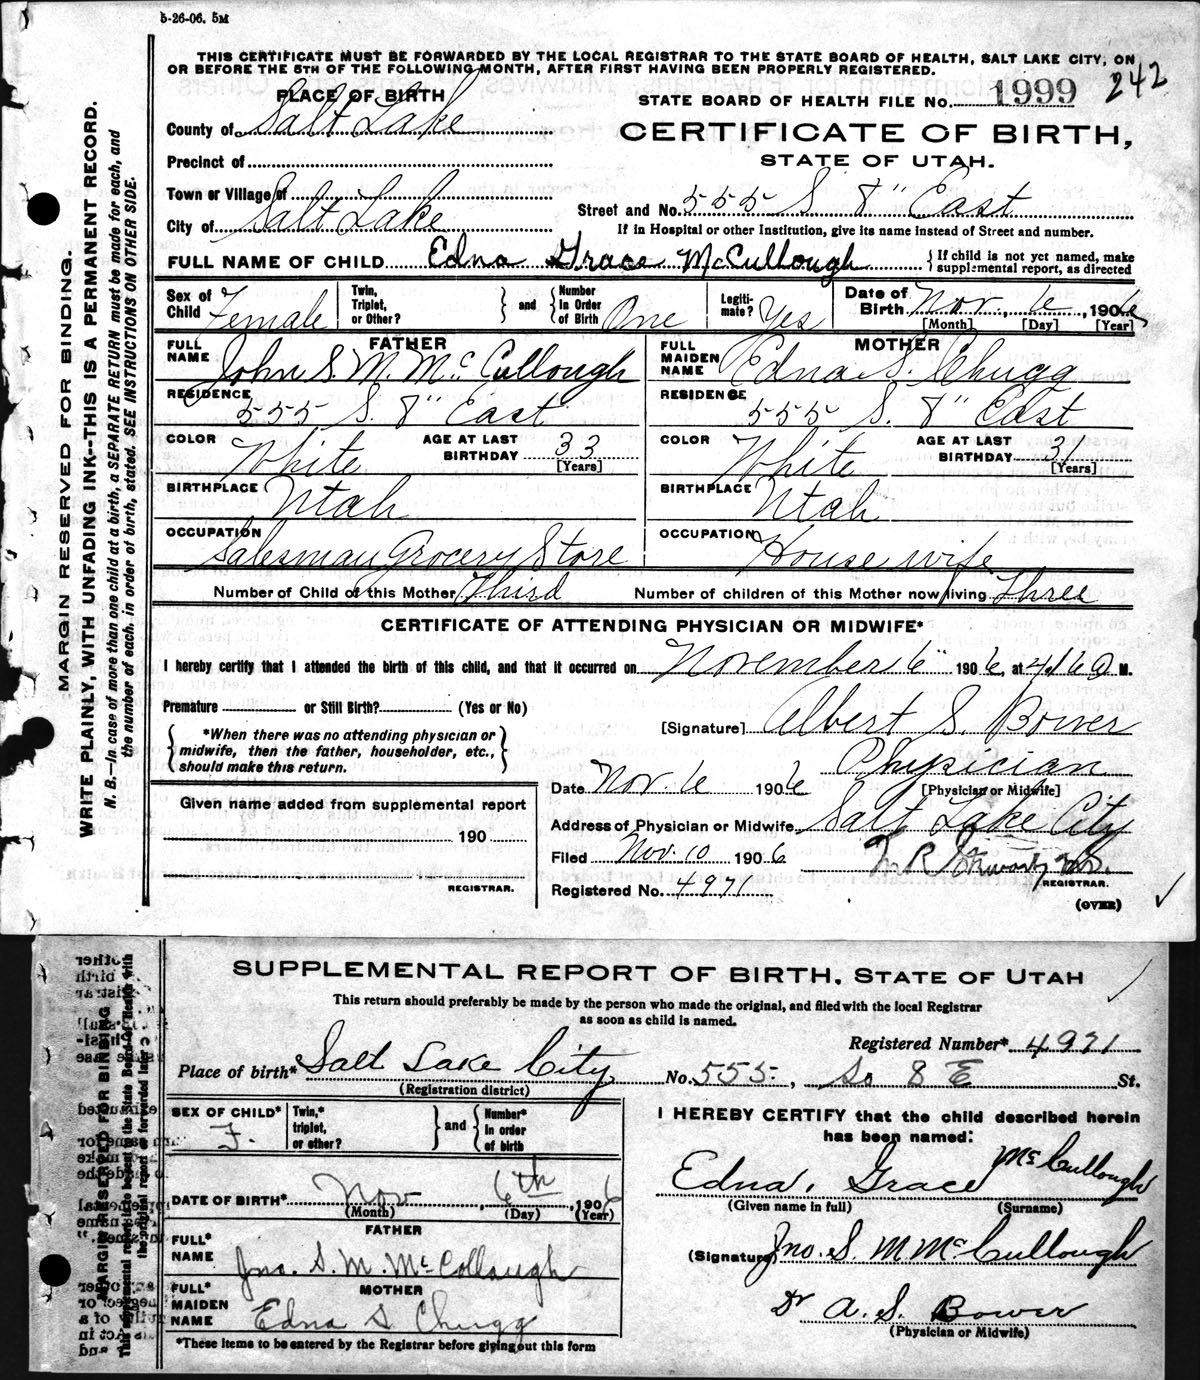 5-26-06. 5M
THIS CERTIFICATE MUST BE FORWARDED BY THE LOCAL REGISTRAR TO THE STATE BOARD OF HEALTH, SALT LAKE CITY, ON
OR BEFORE THE 5TH OF THE FOLLOWING MONTH, AFTER FIRST HAVING BEEN PROPERLY REGISTERED.
PLACE OF BIRTH
STATE BOARD OF HEALTH FILE NO. 1999 242
County of Salt Lake
CERTIFICATE OF BIRTH,
STATE OF UTAH.
Precinct of
Town or Village of
City of Salt Lake
Street and No. 555 S 8" East
If in Hospital or other Institution, give its name instead of Street and number.
FULL NAME OF CHILD Edna Grace McCullough { If child is not yet named, make supplemental report, as directed
Sex of Child Female
Twin, Triplet, or Other? } and { Number in Order of Birth One
Legiti-mate? Yes
Date of Birth Nov. 6, 1906
[Month] [Day] [Year]
FATHER
FULL NAME John S. M. McCullough
RESIDENCE 555 S. 8" East
COLOR White AGE AT LAST BIRTHDAY 33 [Years]
BIRTHPLACE Utah
OCCUPATION Salesman Grocery Store
MOTHER
FULL MAIDEN NAME Edna S. Chugg
RESIDENCE 555 S. 8" East
COLOR White AGE AT LAST BIRTHDAY 31 [Years]
BIRTHPLACE Utah
OCCUPATION House wife
Number of Child of this Mother Third Number of children of this Mother now living Three
CERTIFICATE OF ATTENDING PHYSICIAN OR MIDWIFE*
I hereby certify that I attended the birth of this child, and that it occurred on November 6" 1906, at M.
Premature or Still Birth? (Yes or No)
{ *When there was no attending physician or
midwife, then the father, householder, etc.,
should make this return. }
[Signature] Albert S. Bower
Physician
[Physician or Midwife]
Date Nov. 6 1906
Address of Physician or Midwife Salt Lake City
Filed Nov. 10 1906
REGISTRAR.
Registered No. 4971
(OVER)
Given name added from supplemental report
190
REGISTRAR.
MARGIN RESERVED FOR BINDING.
WRITE PLAINLY, WITH UNFADING INK--THIS IS A PERMANENT RECORD.
N. B.--In case of more than one child at a birth, a SEPARATE RETURN must be made for each, and
the number of each, in order of birth, stated. SEE INSTRUCTIONS ON OTHER SIDE.
SUPPLEMENTAL REPORT OF BIRTH, STATE OF UTAH
This return should preferably be made by the person who made the original, and filed with the local Registrar
as soon as child is named.
Registered Number* 4971
Place of birth* Salt Lake City No. 555, So 8 E St.
(Registration district)
SEX OF CHILD* F.
Twin,* triplet, or other? } and { Number* in order of birth
DATE OF BIRTH* Nov 6th, 1906
(Month) (Day) (Year)
FATHER
FULL* NAME Jno. S. M. McCollough
MOTHER
FULL* MAIDEN NAME Edna S Chugg
*These items to be entered by the Registrar before giving out this form
I HEREBY CERTIFY that the child described herein
has been named:
Edna, Grace McCullough
(Given name in full) (Surname)
(Signature) Jno. S. M McCullough
Dr A. S. Bower
(Physician or Midwife)
MARGIN RESERVED FOR BINDING